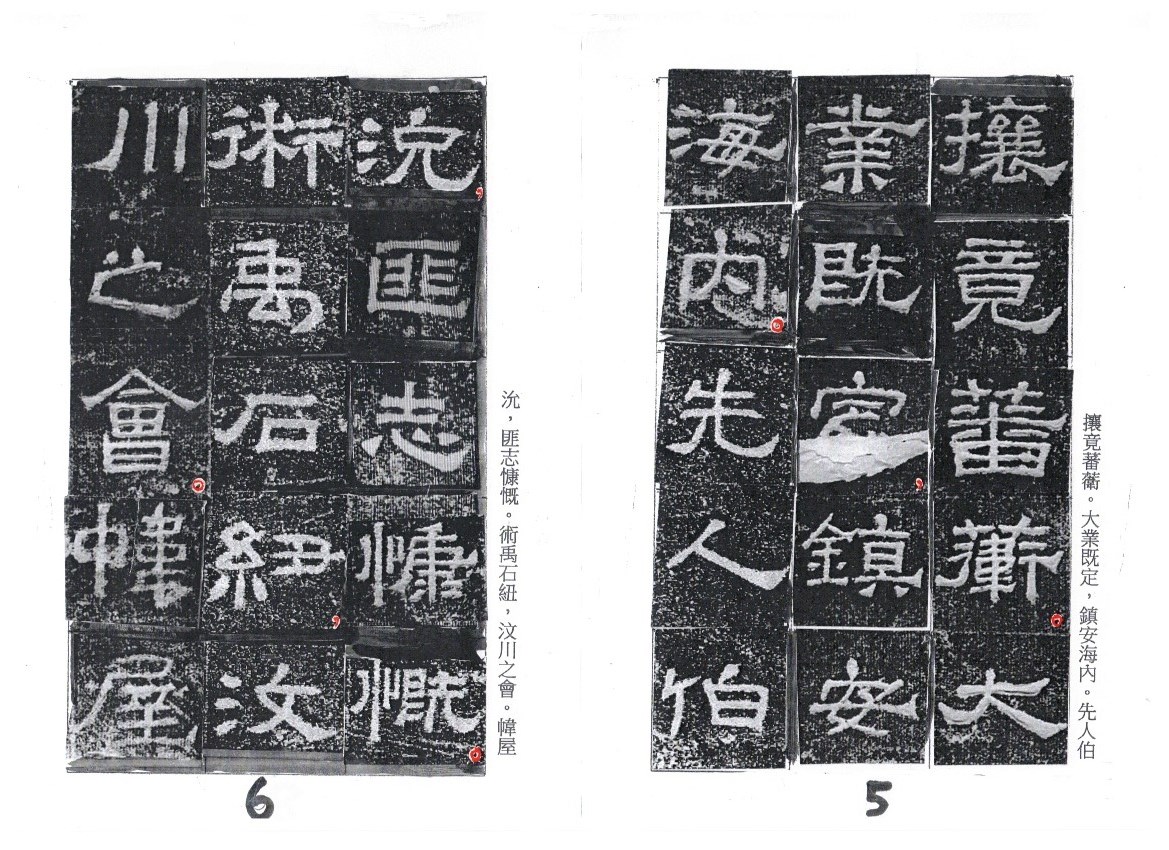 攘竟蕃蘅大
業既定鎮安
海內先人伯
攘竟蕃蘅。大業既定，鎮安海內。先人伯
5
沇匪志慷慨
術禹石紐汶
川之會幃屋
沇，匪志慷慨。術禹石紐，汶川之會。幃屋
6